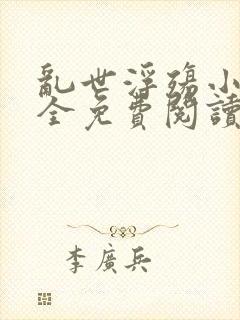 亂世浮殤小
全免費閱讀
李廣兵